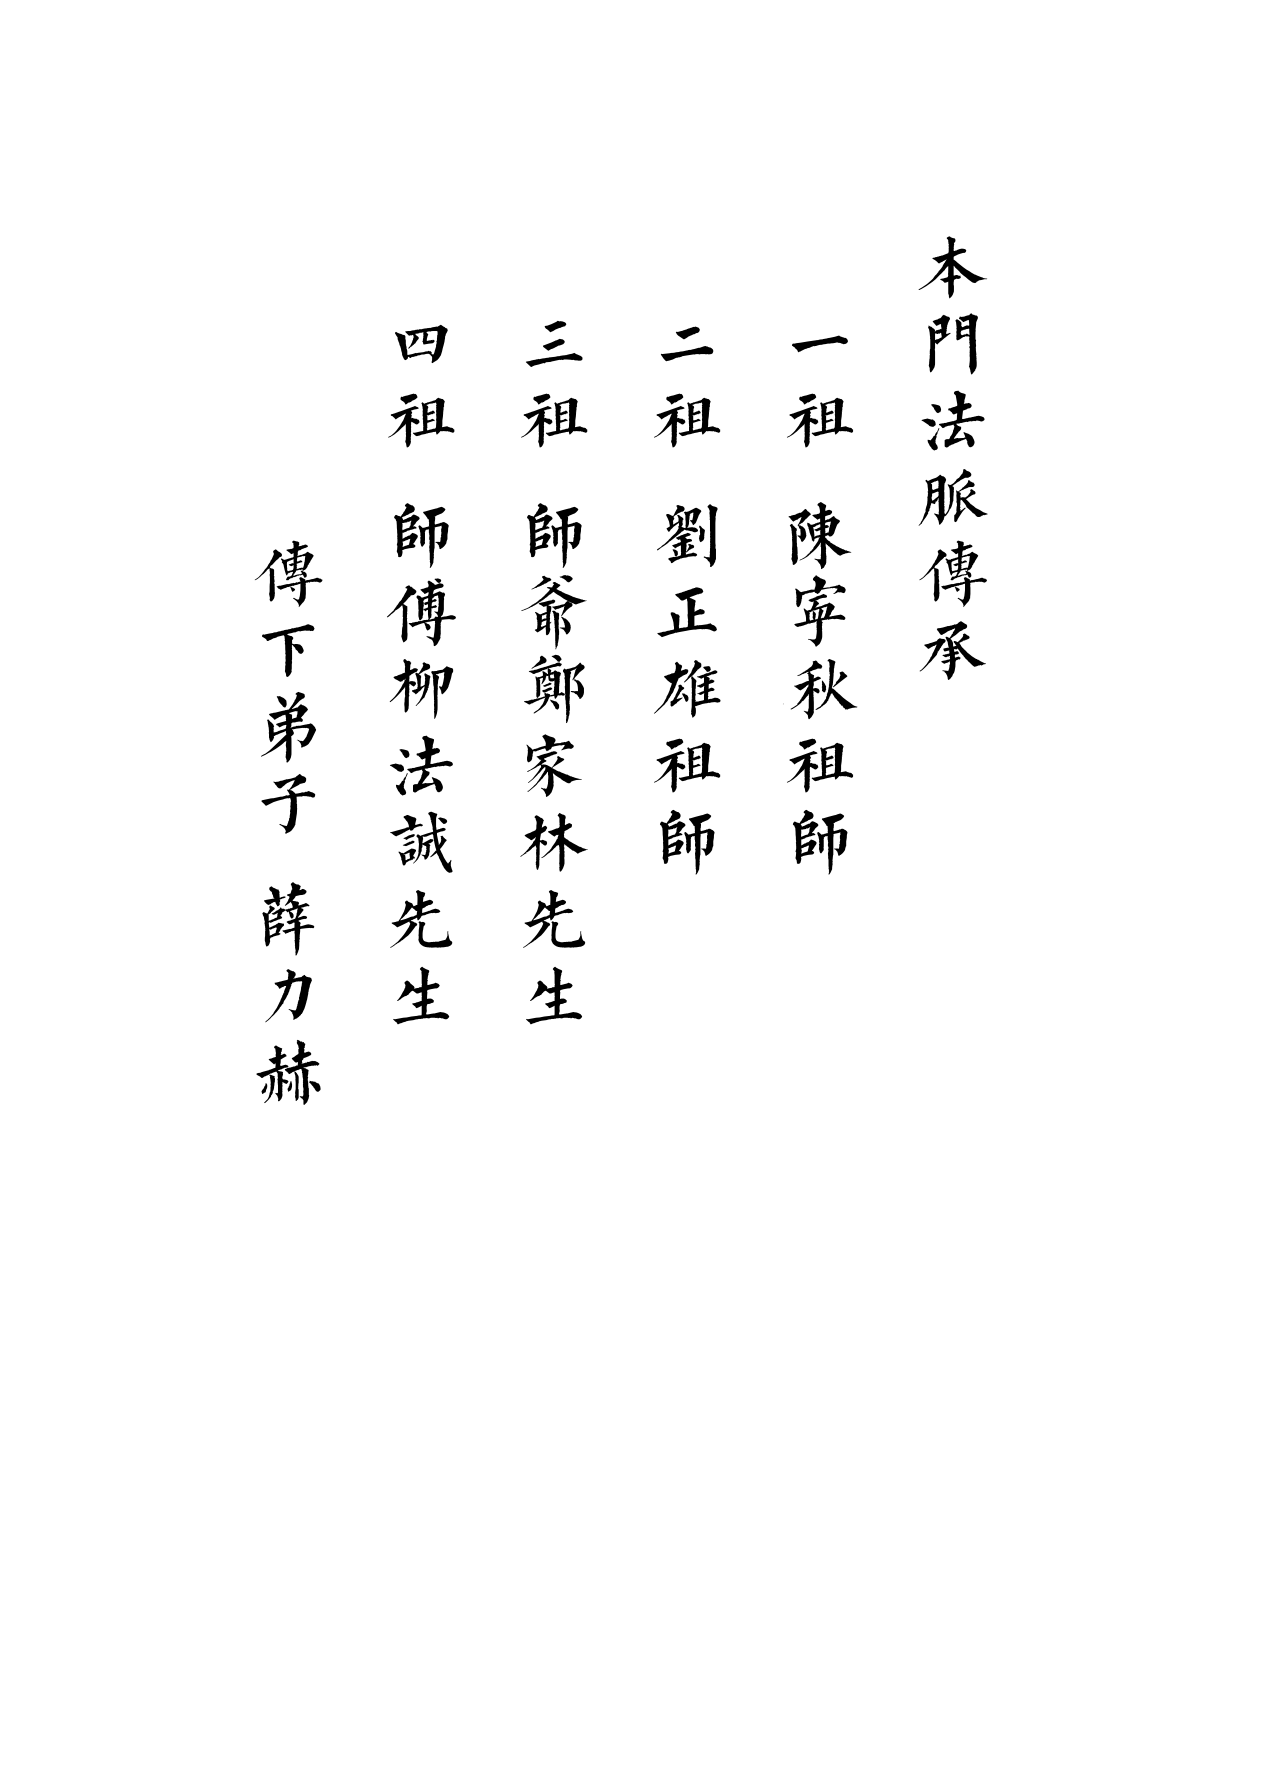 本門法脈傳承
一祖 陳寧秋祖師
二祖 劉正雄祖師
三祖 師爺鄭家林先生
四祖 師傅柳法誠先生
傳下弟子 薛力赫